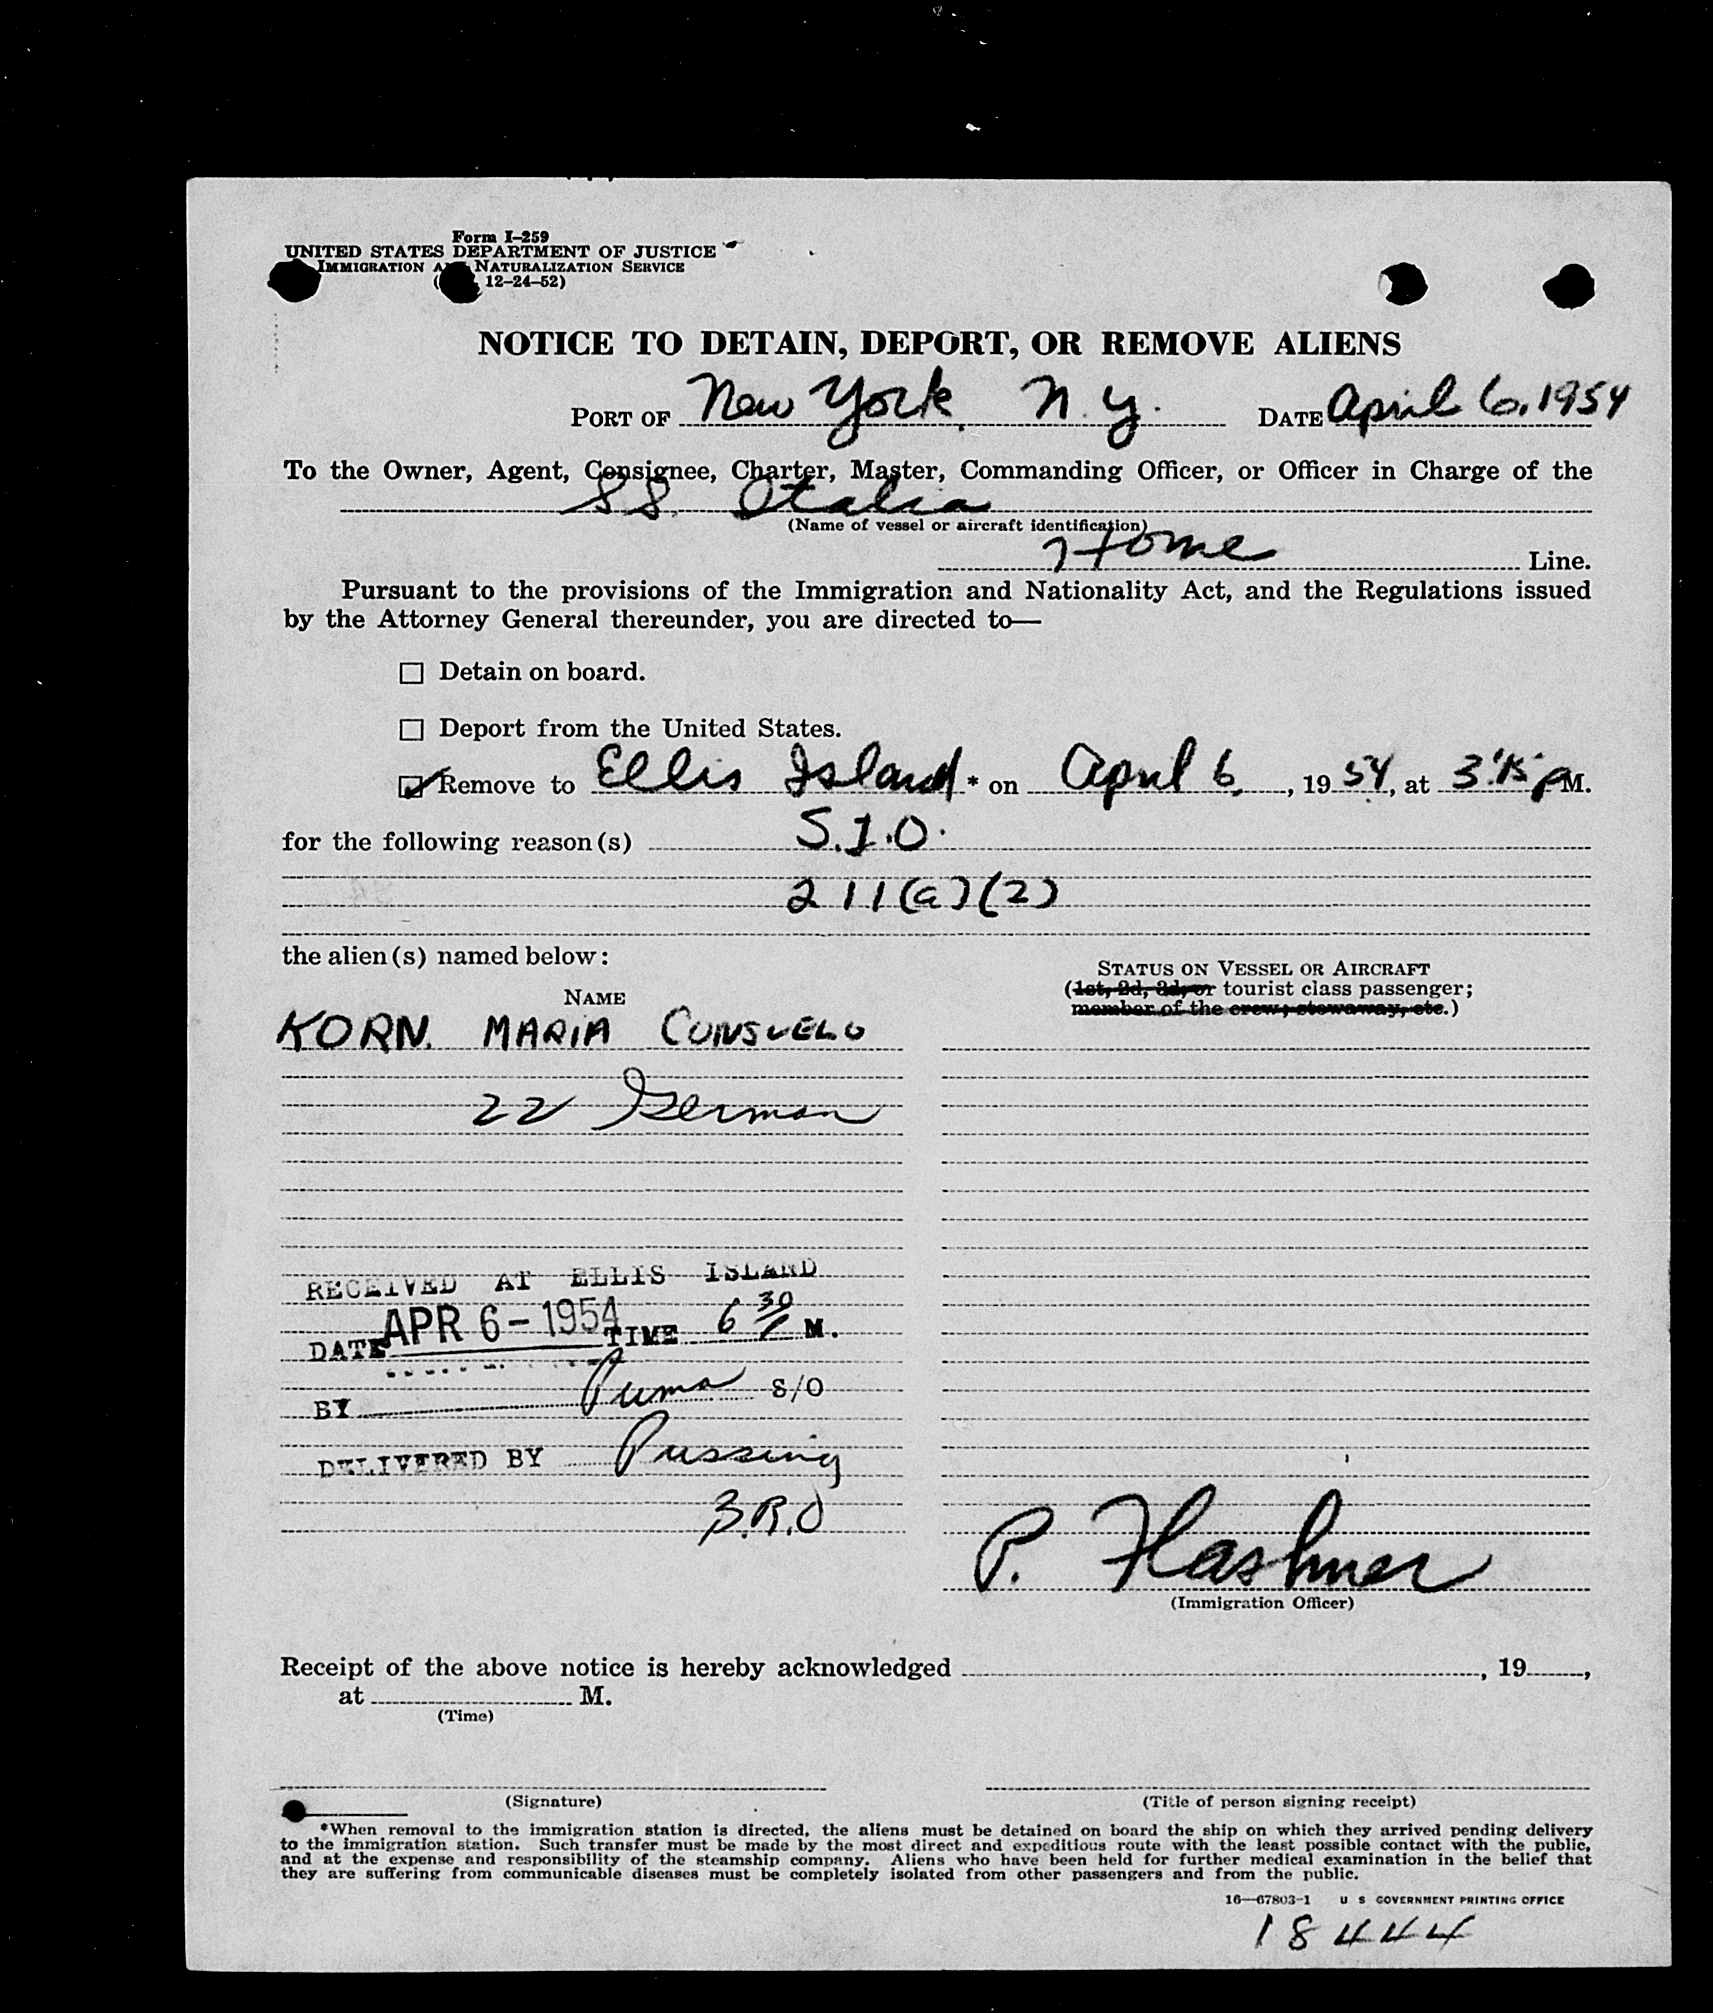 Form I-259
UNITED STATES DEPARTMENT OF JUSTICE
IMMIGRATION AND NATURALIZATION SERVICE
( 12-24-52)
NOTICE TO DETAIN, DEPORT, OR REMOVE ALIENS
PORT OF New York, N. Y. DATE April 6, 1954
To the Owner, Agent, Consignee, Charter, Master, Commanding Officer, or Officer in Charge of the
SS. Italia
(Name of vessel or aircraft identification)
Home Line.
Pursuant to the provisions of the Immigration and Nationality Act, and the Regulations issued
by the Attorney General thereunder, you are directed to—
☐ Detain on board.
☐ Deport from the United States.
☑ Remove to Ellis Island * on April 6, , 1954, at 3:15 PM.
for the following reason(s) S.I.O.
211(a)(2)
the alien(s) named below:
STATUS ON VESSEL OR AIRCRAFT
(1st, 2d, 3d, or tourist class passenger;
member of the crew; stowaway, etc.)
NAME
KORN. MARIA CONSUELO
22 German
RECEIVED AT ELLIS ISLAND
DATE APR 6 - 1954 TIME 6 30 M.
BY Puma S/O
DELIVERED BY Pussing
B.R.O
P. Flashner
(Immigration Officer)
Receipt of the above notice is hereby acknowledged , 19 ,
at M.
(Time)
(Signature) (Title of person signing receipt)
*When removal to the immigration station is directed, the aliens must be detained on board the ship on which they arrived pending delivery
to the immigration station. Such transfer must be made by the most direct and expeditious route with the least possible contact with the public,
and at the expense and responsibility of the steamship company. Aliens who have been held for further medical examination in the belief that
they are suffering from communicable diseases must be completely isolated from other passengers and from the public.
16—67803-1 U S GOVERNMENT PRINTING OFFICE
18444